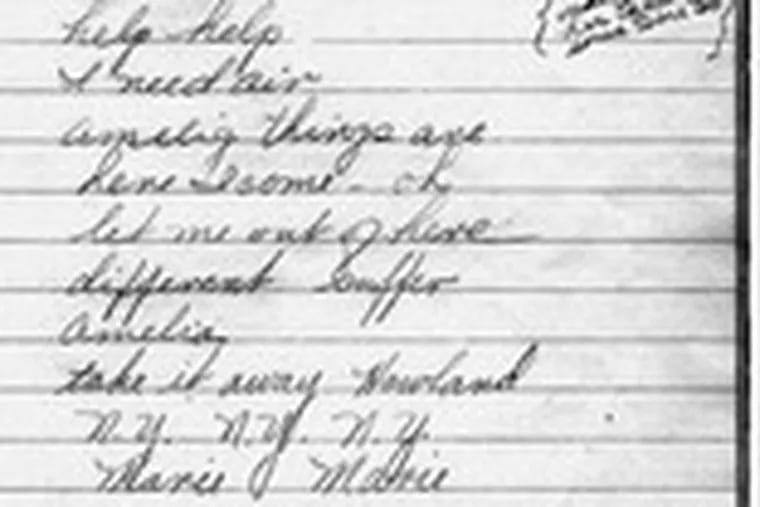 help help
I need air
amelia things are
here I come - oh
let me out of here
different suffer
Amelia
take it away Howland
N.Y. N.Y. N.Y.
Marie Marie